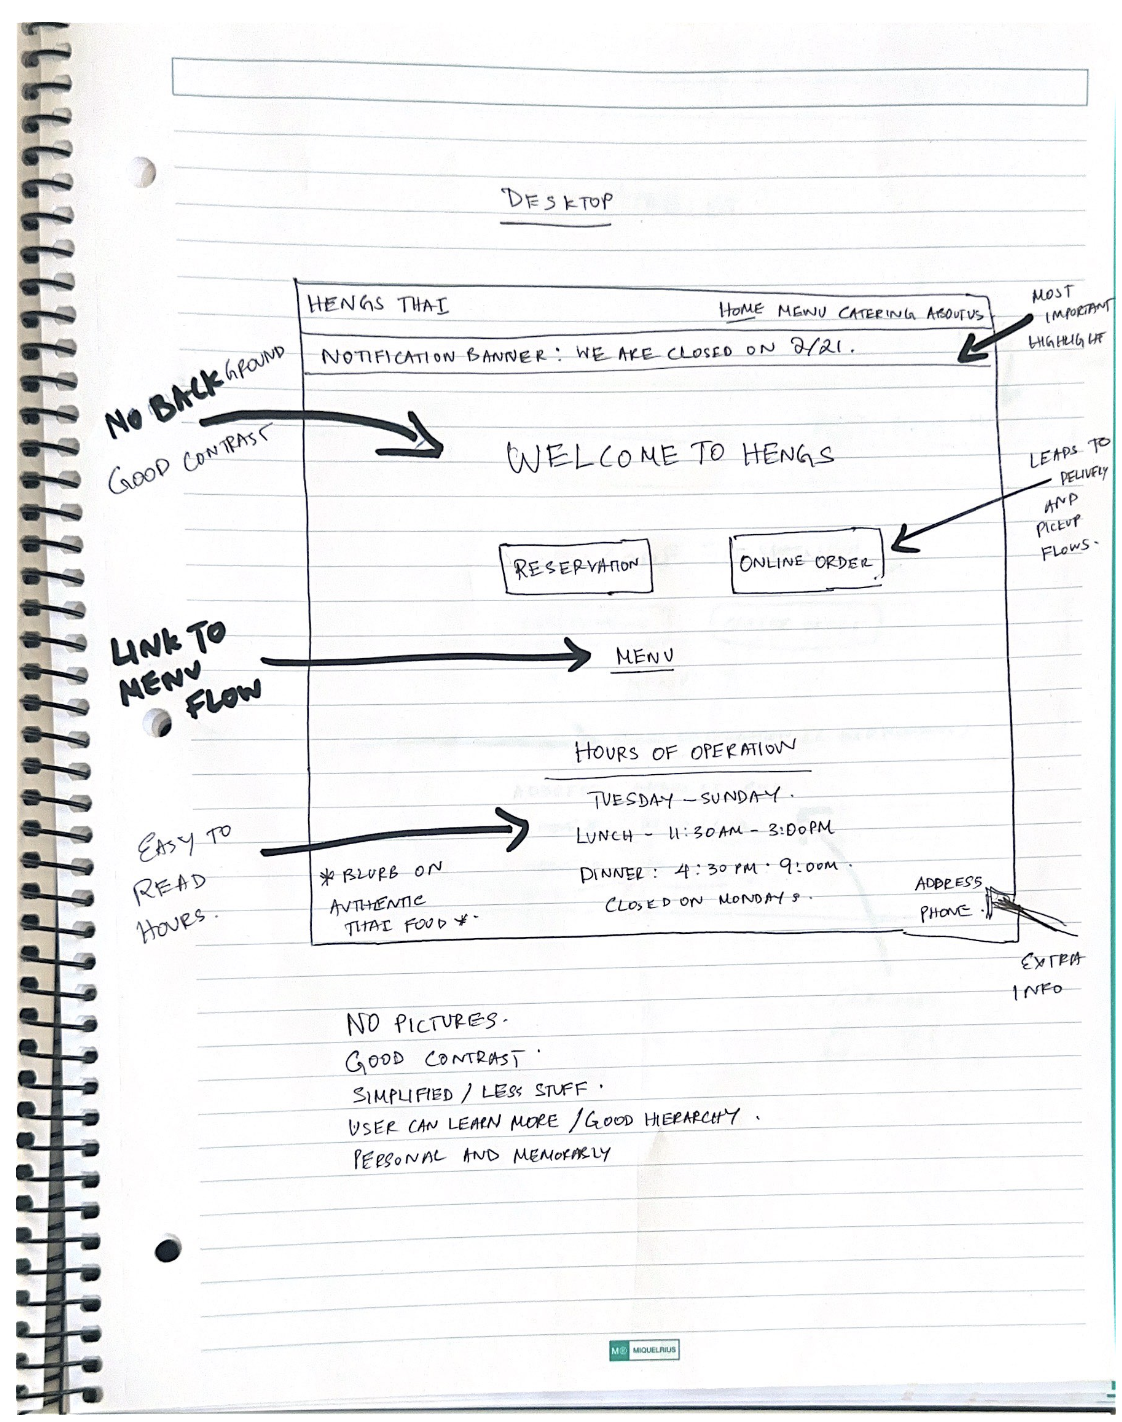 DESKTOP
HENGS THAI
HOME MENU CATERING ABOUT US
NOTIFICATION BANNER: WE ARE CLOSED ON 2/21.
MOST
IMPORTANT
HIGHLIGHT
NO BACKGROUND
GOOD CONTRAST
WELCOME TO HENGS
LEADS TO
DELIVELY
AND
PICKUP
FLOWS.
RESERVATION
ONLINE ORDER
LINK TO
MENU
FLOW
MENU
HOURS OF OPERATION
TUESDAY - SUNDAY.
LUNCH - 11:30AM - 3:00PM
DINNER: 4:30PM - 9:00M.
CLOSED ON MONDAYS.
EASY TO
READ
HOURS.
* BLURB ON
AUTHENTIC
THAI FOOD *.
ADDRESS
PHONE.
EXTRA
INFO
NO PICTURES.
GOOD CONTRAST.
SIMPLIFIED / LESS STUFF.
USER CAN LEARN MORE / GOOD HIERARCHY.
PERSONAL AND MEMORABLY
MR MIQUELRIUS